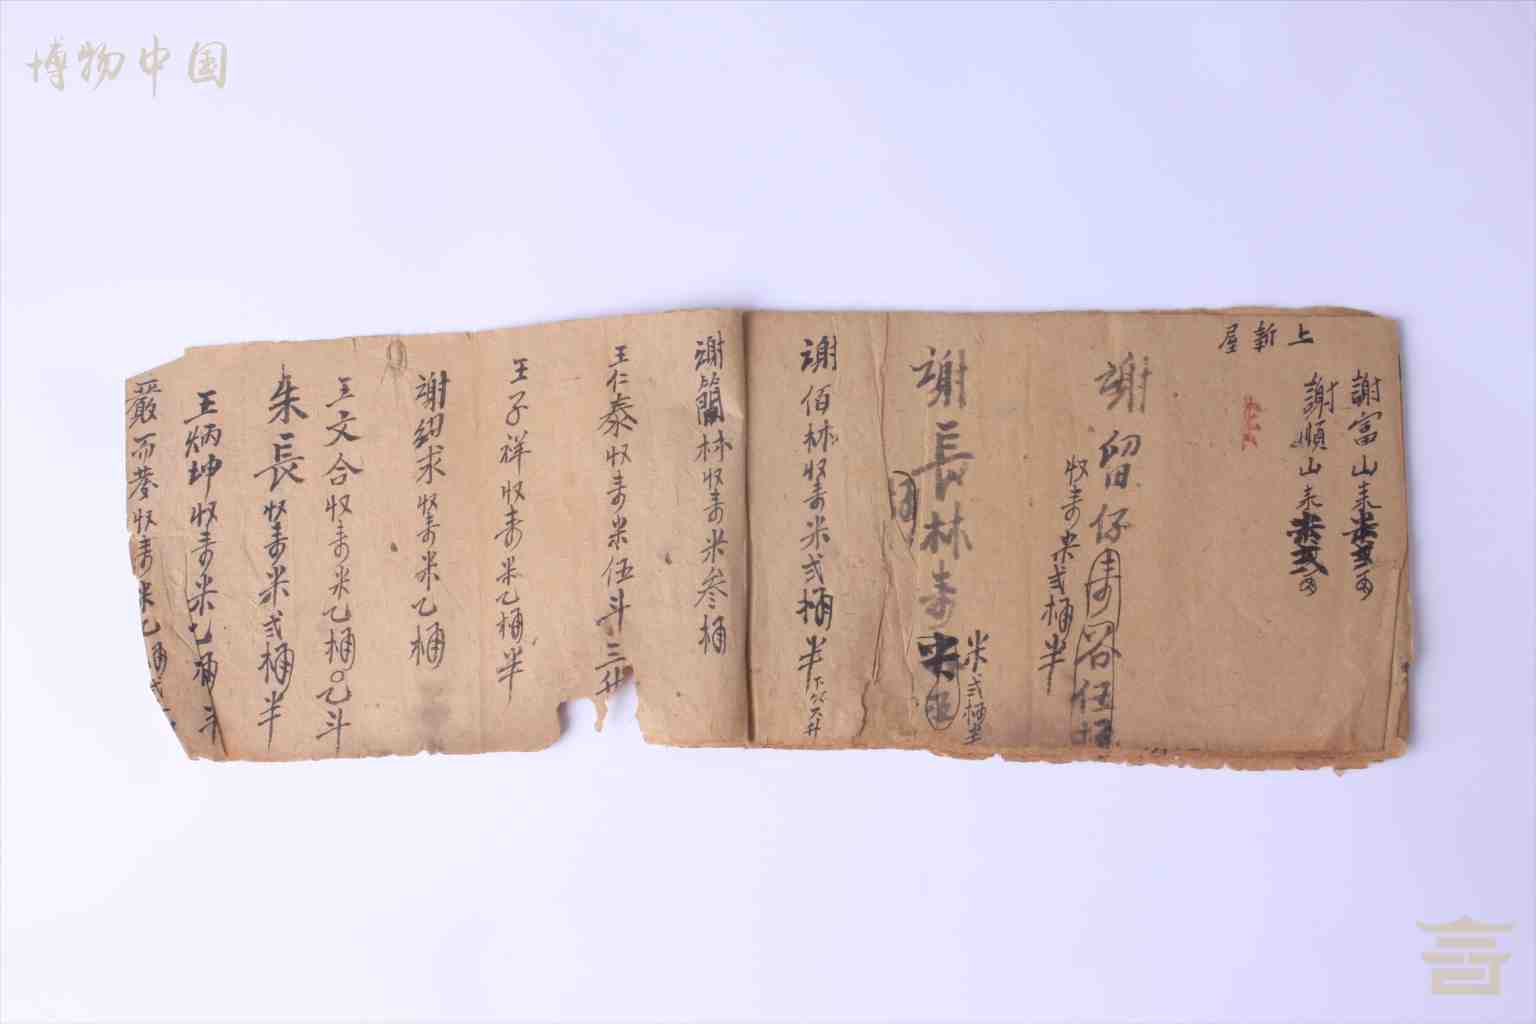 博物中国
上新屋
謝富山
謝順山
謝留仔
收壽米弍桶半
謝長林壽米
米弍桶半
謝佰林收壽米弍桶半
謝簡林收壽米叁桶
王仁泰收壽米伍斗三升
王子祥收壽米乙桶半
謝紹求收壽米乙桶
王文合收壽米乙桶〇乙斗
朱長收壽米弍桶半
王炳坤收壽米乙桶 斗
嚴而 收壽米乙桶